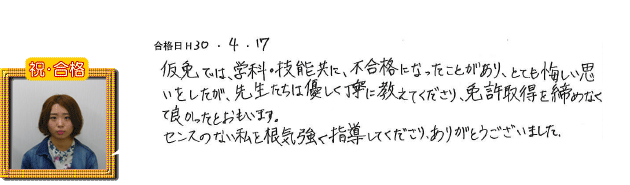 合格日 H30.4.17
祝・合格
仮免では、学科・技能共に、不合格になったことがあり、とても悔しい思
いをしたが、先生たちは優しく丁寧に教えてくださり、免許取得を締めなく
て良かったとおもいます。
センスのない私を根気強く指導してくださり、ありがとうございました。